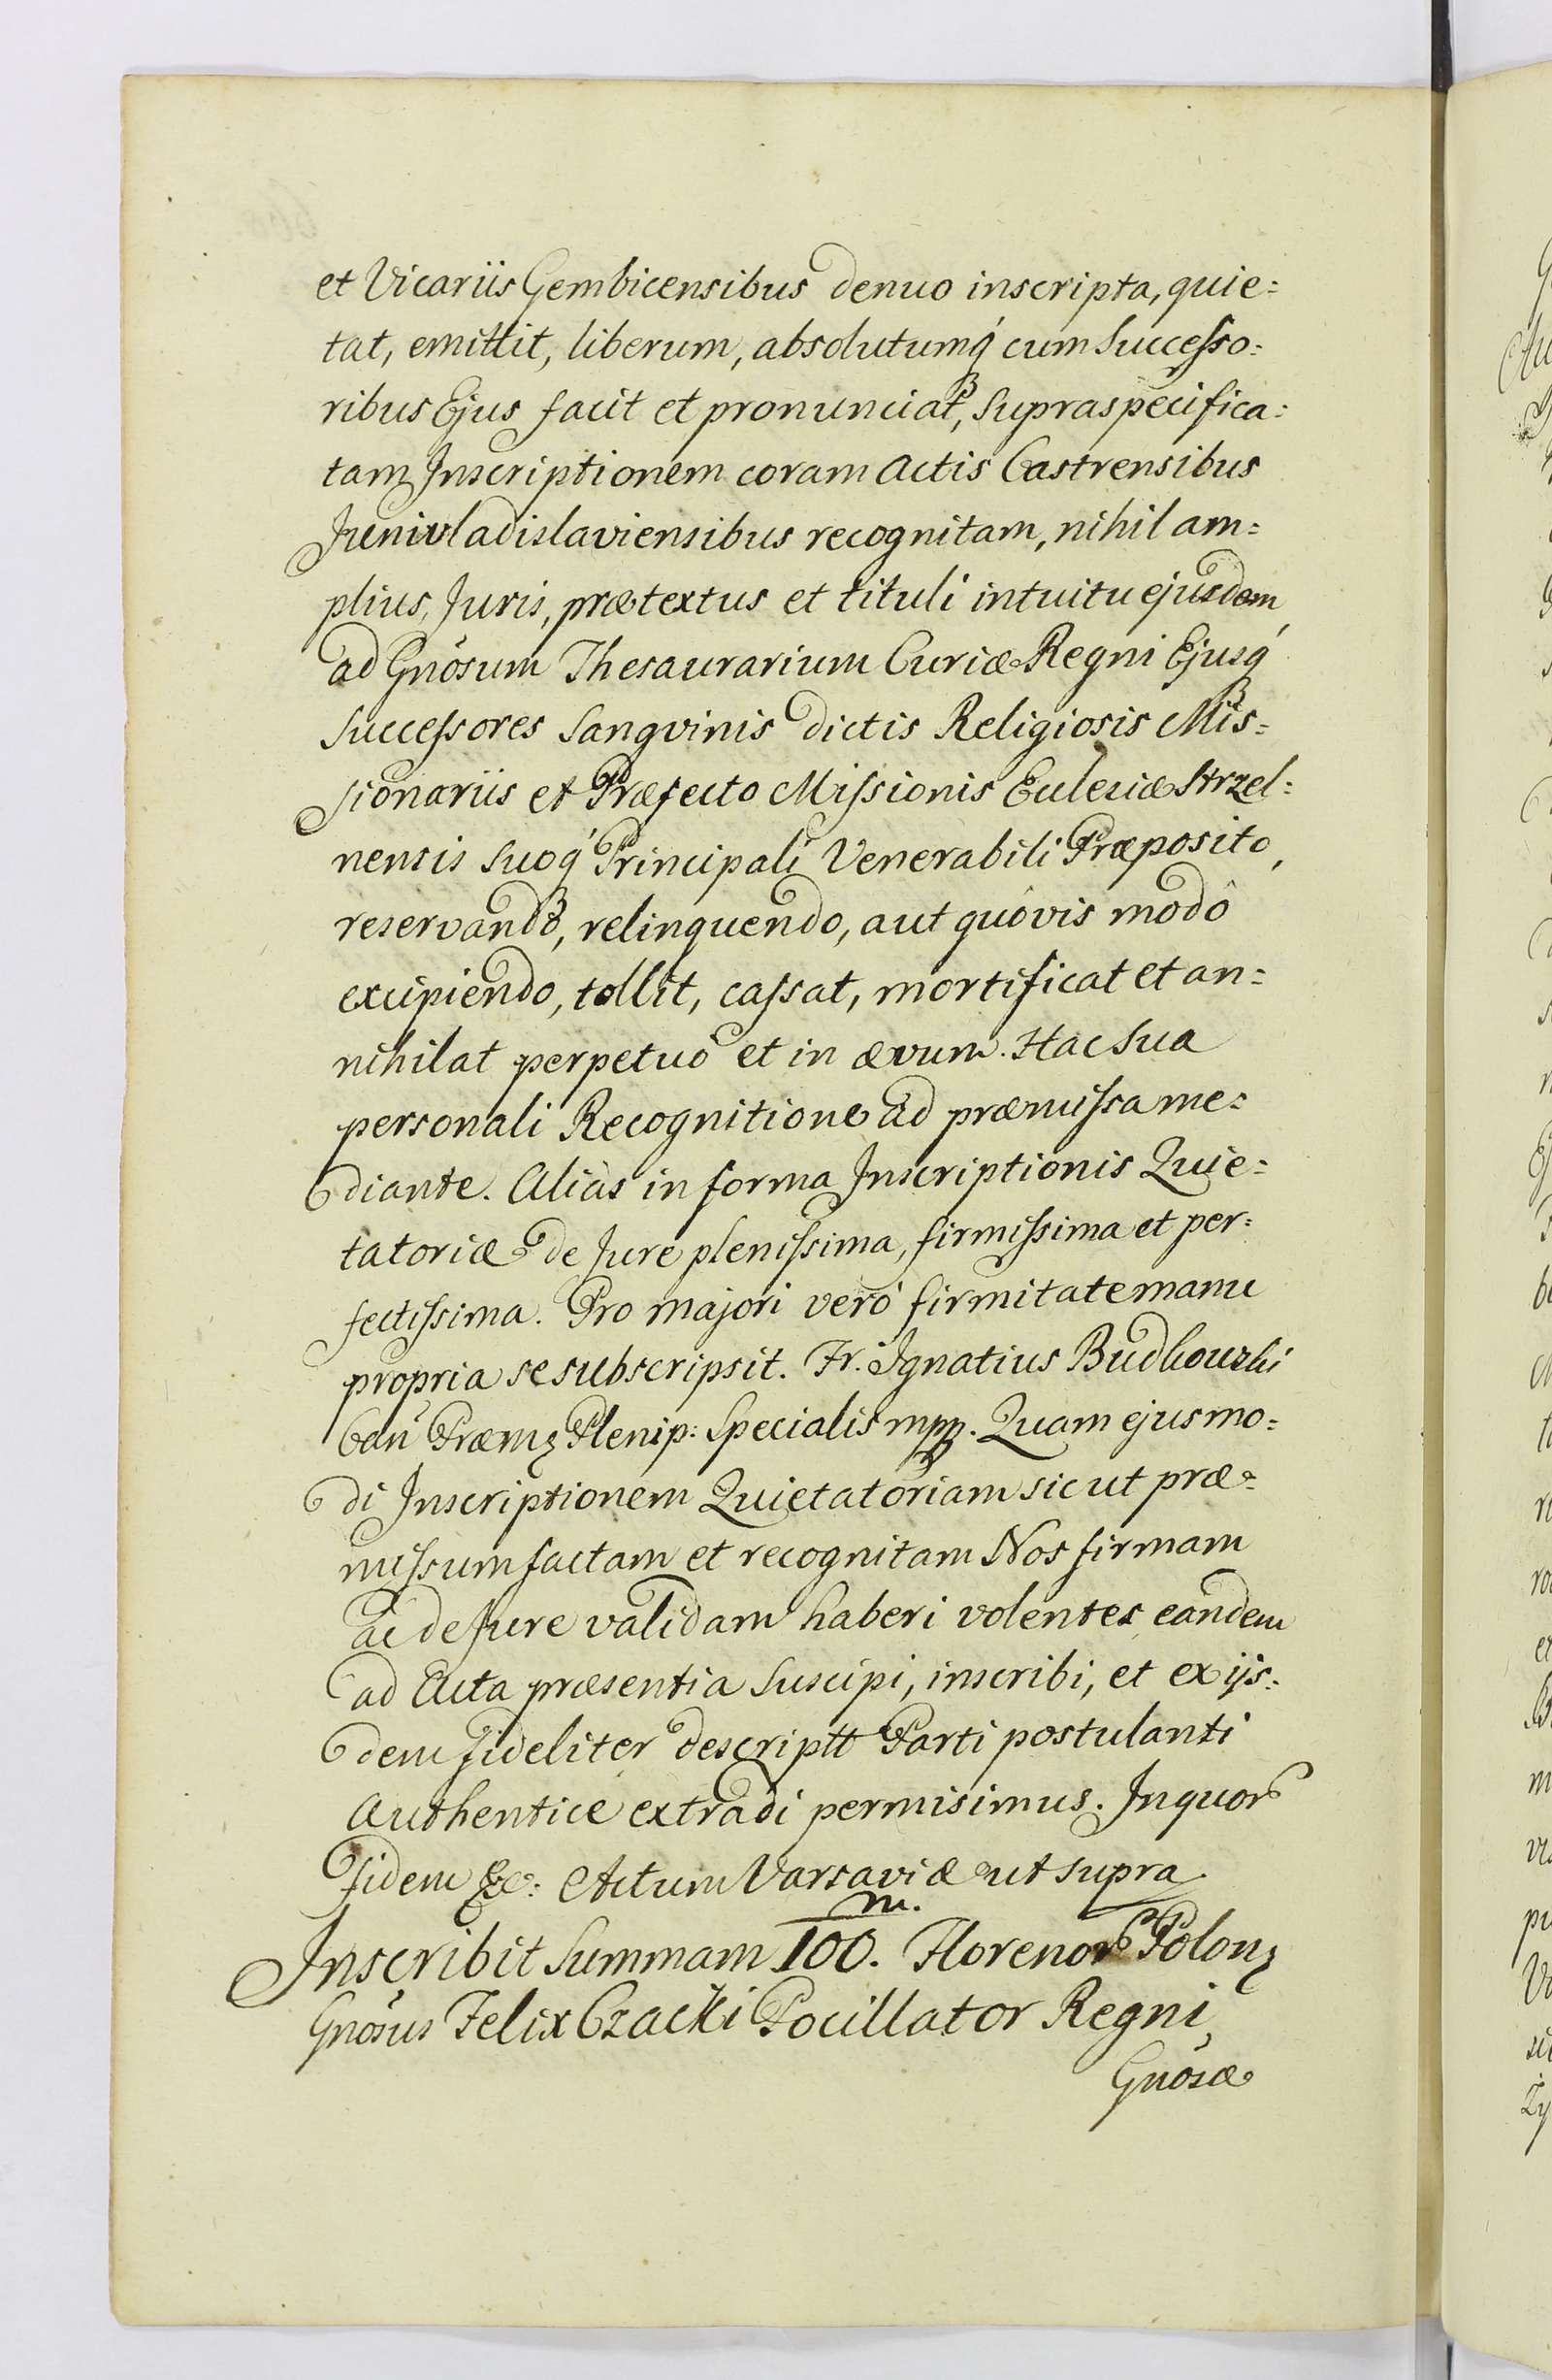 et Vicariis Gembicensibus denuo inscripta, quie=
tat, emittit, liberum, absolutumq́ cum Successo=
ribus Ejus facit et pronunciat, Supraspecifica=
tam Inscriptionem coram Actis Castrensibus
Junivladislaviensibus recognitam, nihil am=
plius, Juris, prætextus et tituli intuitu ejusdem,
ad Gnõsum Thesaurarium Curiæ Regni Ejusq́
Successores Sangvinis dictis Religiosis Mis=
sionariis et Præfecto Missionis Euleciæ Strzel=
nensis Suoq́ Principali Venerabili Præposito,
reservando, relinquendo, aut quôvis modô
excipiendo, tollit, cassat, mortificat et an=
nihilat perpetuo et in ævum. Hac Sua
personali Recognitione ad præmissa me=
diante. Aliàs in forma Inscriptionis Quie=
tatoriæ de Jure plenissima, firmissima et per=
fectissima. Pro majori verò firmitate manu
propria se subscripsit. Fr. Ignatius Budkouzki
Can̄ Præmȝ Plenip: Specialis mpp. Quam ejusmo=
di Inscriptionem Quietatoriam sicut præ=
missum factam et recognitam Nos firmam
ac de Jure validam haberi volentes, eandem
ad Acta præsentia Suscipi, inscribi, et ex ijs=
dem fideliter descriptt Parti postulanti
Authentice extradi permisimus. In quor
fidem &c: Actum Varsaviæ ut supra.
m.
Inscribit Summam 100. Florenor Polonȝ
Gnõsus Felix Czacki Pocillator Regni,
Gnõsæ